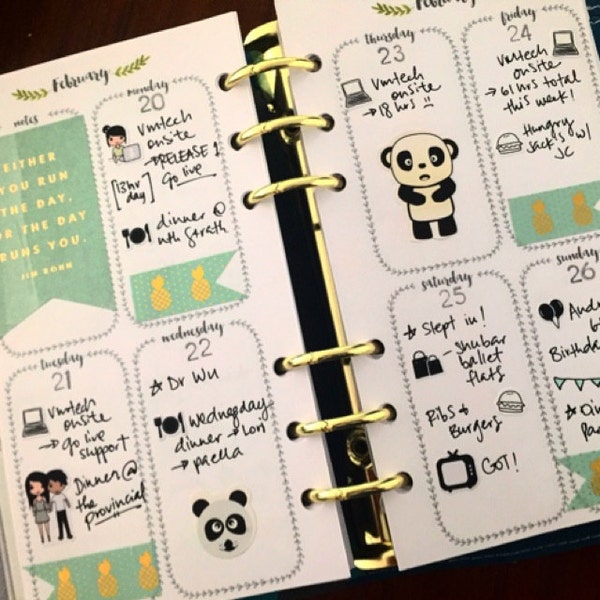 February
notes
EITHER
YOU RUN
THE DAY,
OR THE DAY
RUNS YOU.
JIM ROHN
monday
20
Vmtech
onsite
→ RELEASE 1
Go live
[13hr
day]
dinner @
nth Strath
tuesday
21
Vmtech
onsite
→ go live
support
Dinner @
the
provincial
wednesday
22
☆ Dr Wu
wednesday
dinner → Lori
→ paella
February
thursday
23
Vmtech
onsite
→ 18 hrs !!
friday
24
Vmtech
onsite
→ 61 hrs total
this week!
Hungry
Jack's w/
JC
saturday
25
☆ Slept in!
- shubar
ballet
flats
Ribs &
Burgers
GOT!
sunday
26
Birthda